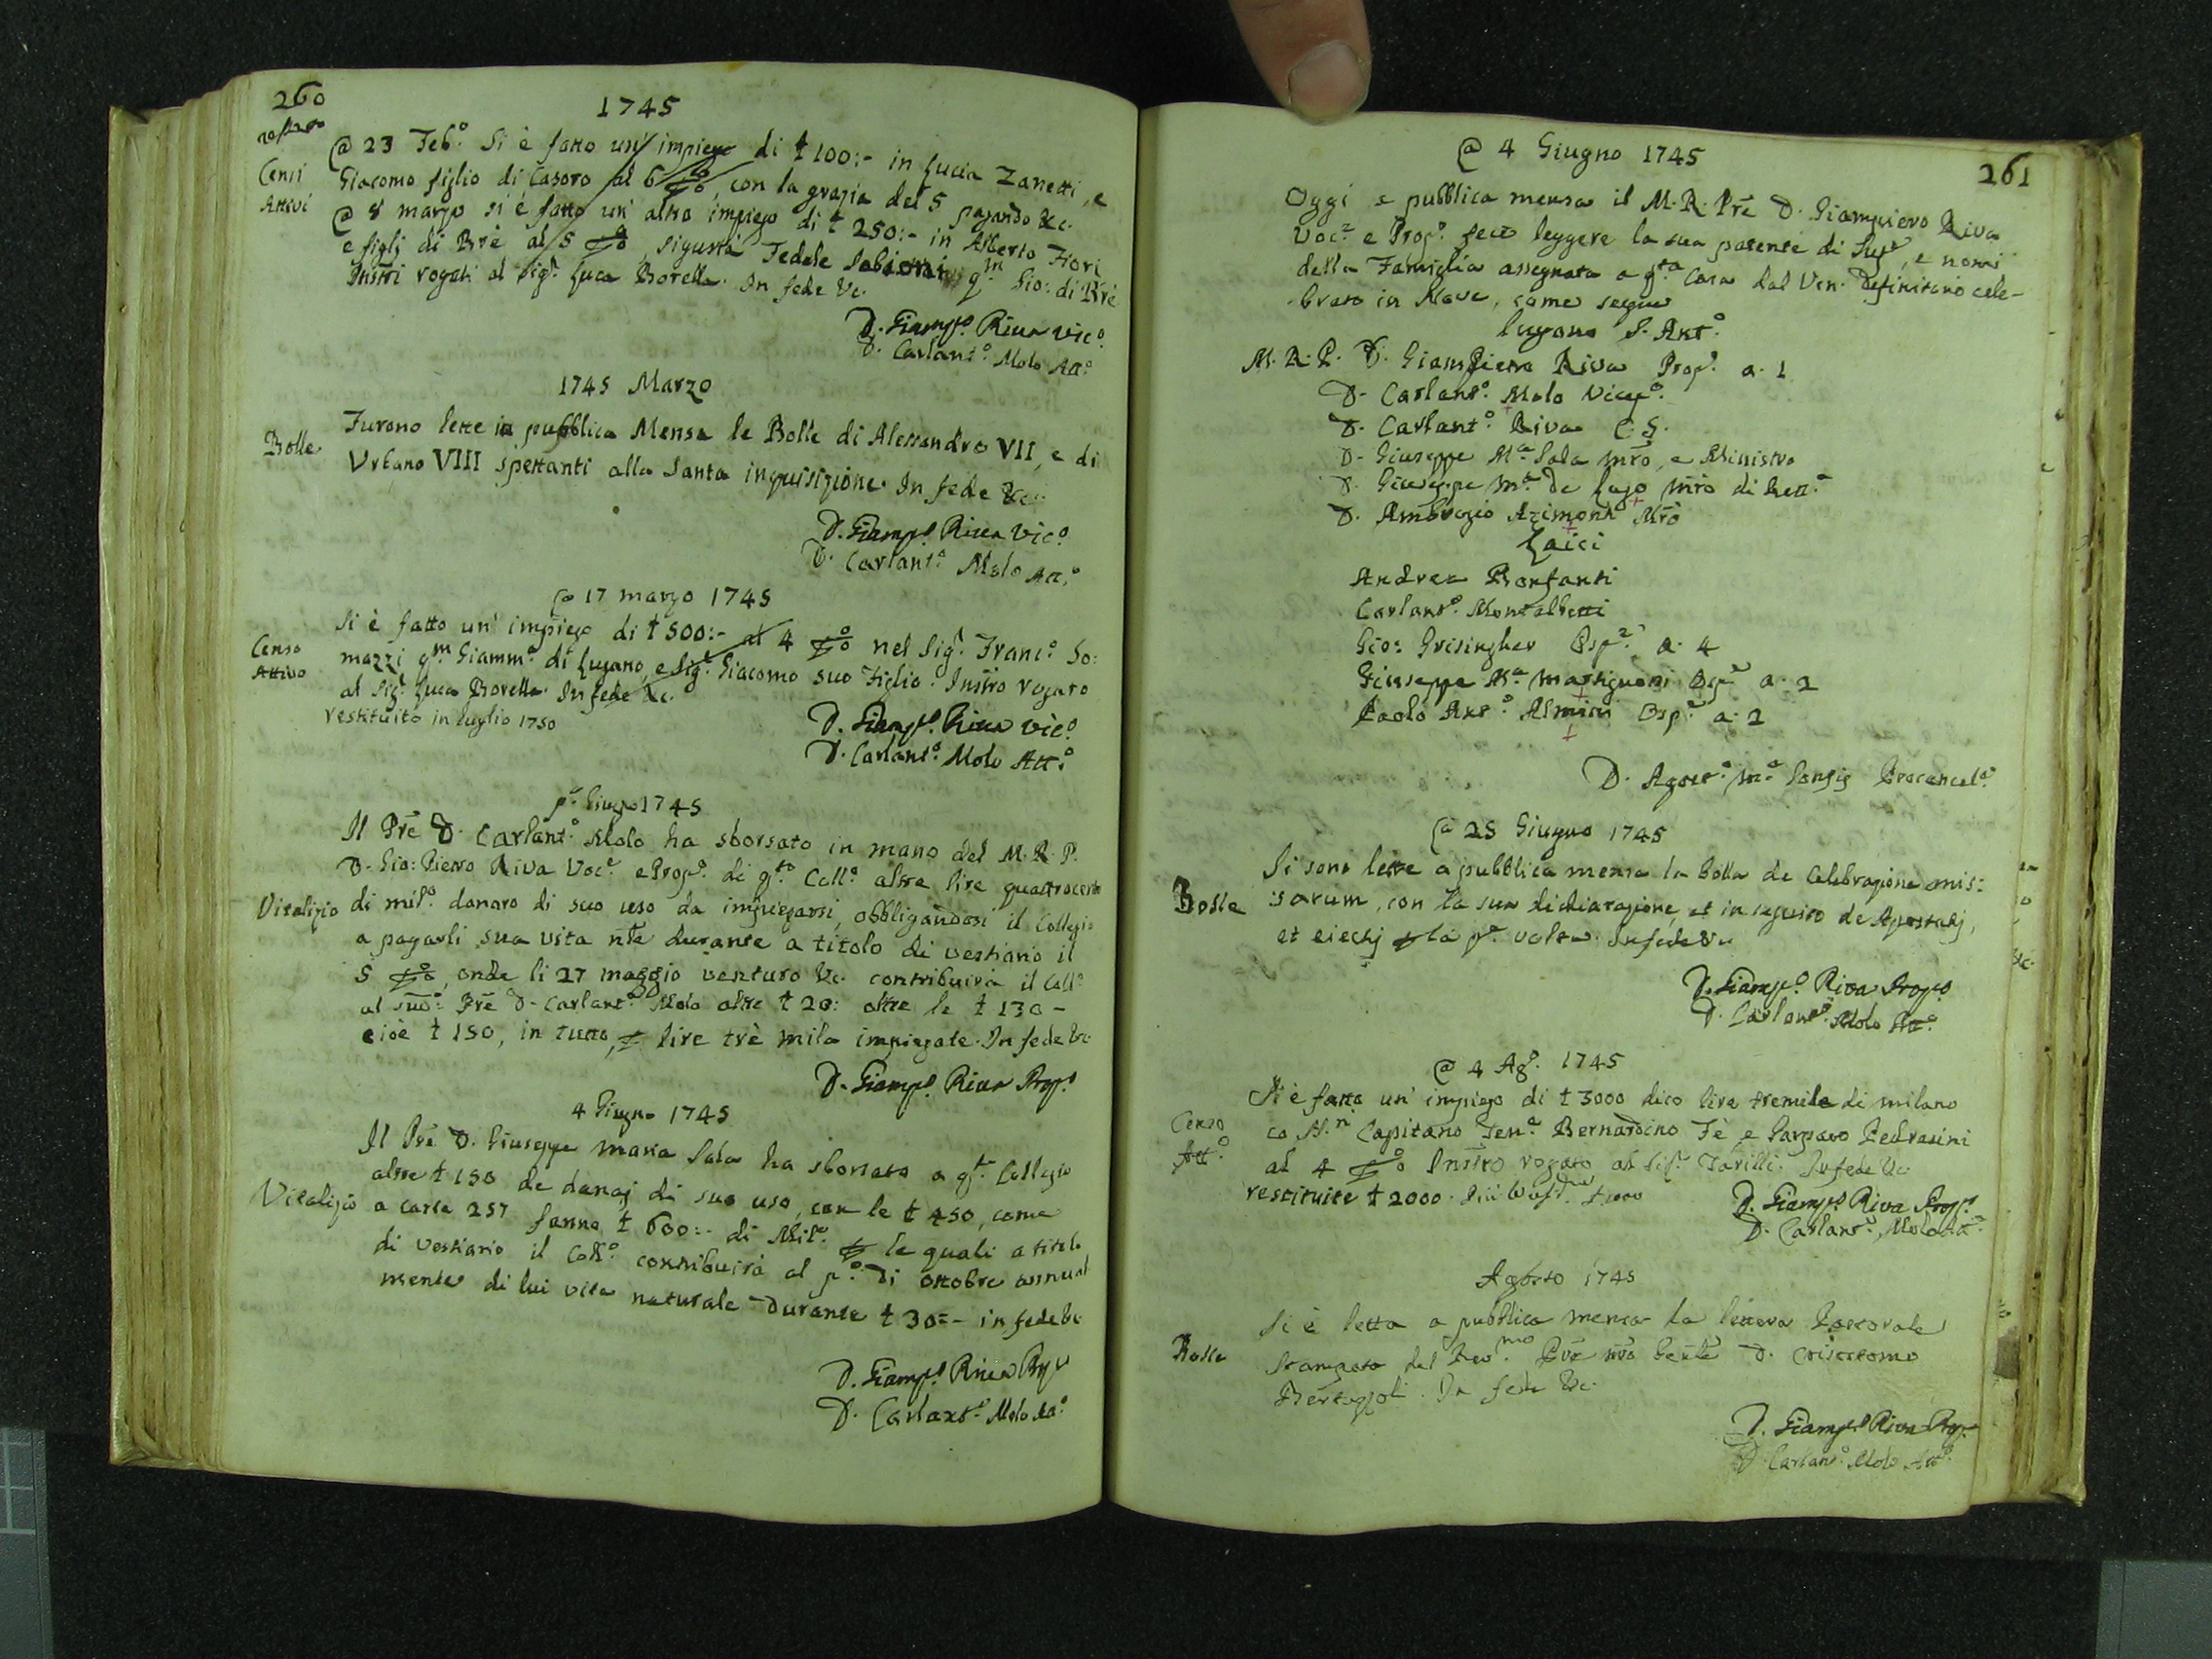 260
1745
Censi
Attivi
@ 23 Feb.º Si è fatto un' impiego di ₤ 100:- in Lucia Zanetti, e
Giacomo figlio di Casoro al 6 p%, con la grazia del 5 pagando &c.
@ 8 marzo si è fatto un' altro impiego di ₤ 250:- in Alberto Fiori
e figlj di Brè al 5 p%, sigurtà Fedele q.m Gio: di Brè
Instri rogati al Sig.r Luca Borella. In fede &c.
D. Giamp.º Riva Vic.º
D. Carlant.º Molo Att.º
1745 Marzo
Bolle
Furono lette in pubblica Mensa le Bolle di Alessandro VII, e di
Urbano VIII spettanti alla Santa inquisizione. In fede &c.
D. Giamp.º Riva Vic.º
D. Carlant.º Molo Att.º
@ 17 marzo 1745
Censo
Attivo
Si è fatto un' impiego di ₤ 500:- al 4 p% nel Sig.r Franc.º So:
mazzi q.m Giamm.a di Lugano, e Sig.r Giacomo suo Figlio. Instro rogato
al Sig.r Luca Borella. In fede &c.
restituito in luglio 1750
D. Giamp.º Riva Vic.º
D. Carlant.º Molo Att.º
p.º Giugo 1745
Vitalizio
Il Pre D. Carlant.º Molo ha sborsato in mano del M. R. P.
D. Gio: Pietro Riva Voc.e e Prop.º di q.to Coll.º altre lire quattrocento
di mil.º danaro di suo uso da impiegarsi, obbligandosi il Collegio
a pagarli sua vita nle durante a titolo di vestiario il
5 p%, onde li 27 maggio venturo &c. contribuirà il Coll.º
al sud.º Pre D. Carlant.º Molo altre ₤ 20: oltre le ₤ 130 -
cioè ₤ 150, in tutto, p lire trè mila impiegate. In fede &c.
D. Giamp.º Riva Prop.º
4 Giugno 1745
Vitalizio
Il Pre D. Giuseppe maria Sala ha sborsato a q.to Collegio
altre ₤ 150 de danaj di suo uso, con le ₤ 450, come
a carta 257 fanno ₤ 600:- di Mil.º p le quali a titolo
di vestiario il Coll.º contribuirà al p.º di ottobre annual
mente di lui vita naturale durante ₤ 30:- in fede &c
D. Giamp.º Riva Prop.º
D. Carlant.º Molo Att.º
261
@ 4 Giugno 1745
Oggi a pubblica mensa il M. R. Pre D. Giampietro Riva
Voc.e e Prop.º fece leggere la sua patente di Sup.e, e nomi
della Famiglia assegnata a q.ta Casa dal Ven. Definitorio cele-
brato in Nove, come segue
Lugano S. Ant.º
M. R. P. D. Giampietro Riva Prop.º a. 1
D. Carlant.º Molo Vicep.º
D. Carlant.º Riva C. S.
D. Giuseppe M.a Sala mro, e Ministro
D. Giuseppe M.a de Lugo mro di Rett.a
D. Ambrogio Azimonti Mro
Laici
Andrea Bonfanti
Carlant.º Montalbetti
Gio: Grisingher Osp.e a. 4
Giuseppe M.a Martignoni Osp.e a. 2
Paolo Ant.º Almini Osp.e a. 2
D. Agost.º M.a Procancel.e
@ 25 Giugno 1745
Bolle
Si sono lette a pubblica mensa la bolla de Celebrazione mis:
sarum, con la sua dichiarazione, et in seguito de Apostatij,
et eiectij p la p.a volta. In fede &c
D. Giamp.º Riva Prop.º
D. Carlant.º Molo Att.º
@ 4 Ag.º 1745
Censo
Att.º
Si è fatto un' impiego di ₤ 3000 dico lire tremila di milano
co. Capitano Ten.e Bernardino Fè, e Gasparo Pedrasini
al 4 p% Instro rogato al Sig.r Tarilli. In fede &c
restituite ₤ 2000.
D. Giamp.º Riva Prop.º
D. Carlant.º Molo Att.º
Agosto 1745
Bolle
Si è letta a pubblica mensa la lettera Pastorale
stampata del Rev.mo Pre nro Genle D. Crisostomo
Bertazzoli. In fede &c.
D. Giamp.º Riva Prop.º
D. Carlant.º Molo Att.º